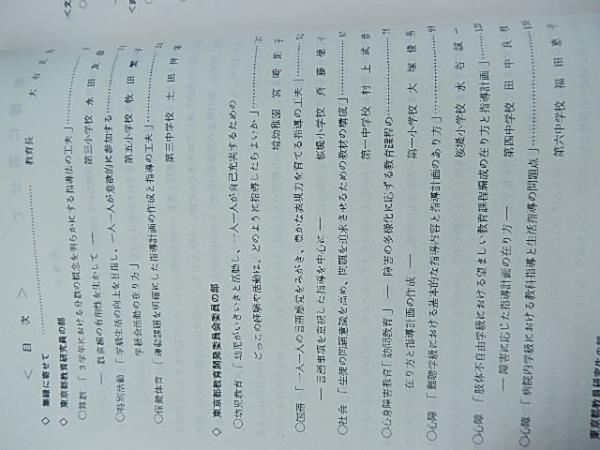 ＜ 目 次 ＞
◇ 集録に寄せて ……… 教育長 大
◇ 東京都教育研究員の部
○算数 「3学年における分数の概念を明らかにする指導法の工夫」
― 数直線の有用性を生かして ― 第三小学校 永 田
○特別活動 「学級生活の向上を目指し、一人一人が意欲的に参加する
学級会活動の在り方」 第五小学校 牧 田 繁 子
○保健体育 「運動課題を明確にした指導計画の作成と指導の工夫」
第三中学校 土 田
◇ 東京都教育開発委員会委員の部
○幼児教育 「幼児がいきいきと活動し、一人一人が自己充実するための
どっこの経験や活動は、どのように指導したらよいか」
幼稚園 宮 崎 子
○国語 「一人一人の言語感覚をみがき、豊かな表現力を育てる指導の工夫」
―言語事項を重視した指導を中心に― 桜堤小学校 斉 藤 子
○社会 「生徒の問題意識を高め、問題を追求させるための教材の構成」
第一中学校 村 上 武
○心身障害教育 「訪問教育」― 障害の多様化に応ずる教育課程の
在り方と指導計画の作成 ― 第一小学校 大 塚
○心障 「難聴学級における基本的な指導内容と指導計画のあり方」
桜堤小学校 水 谷 誠 一
○心障 「肢体不自由学級における望ましい教育課程編成の在り方と指導計画」
― 障害に応じた指導計画の在り方 ― 第四中学校 田 中 良
○心障 「病院内学級における教科指導と生活指導の問題点」
第六中学校 福 田 恵 子
東京都教員研究生の部